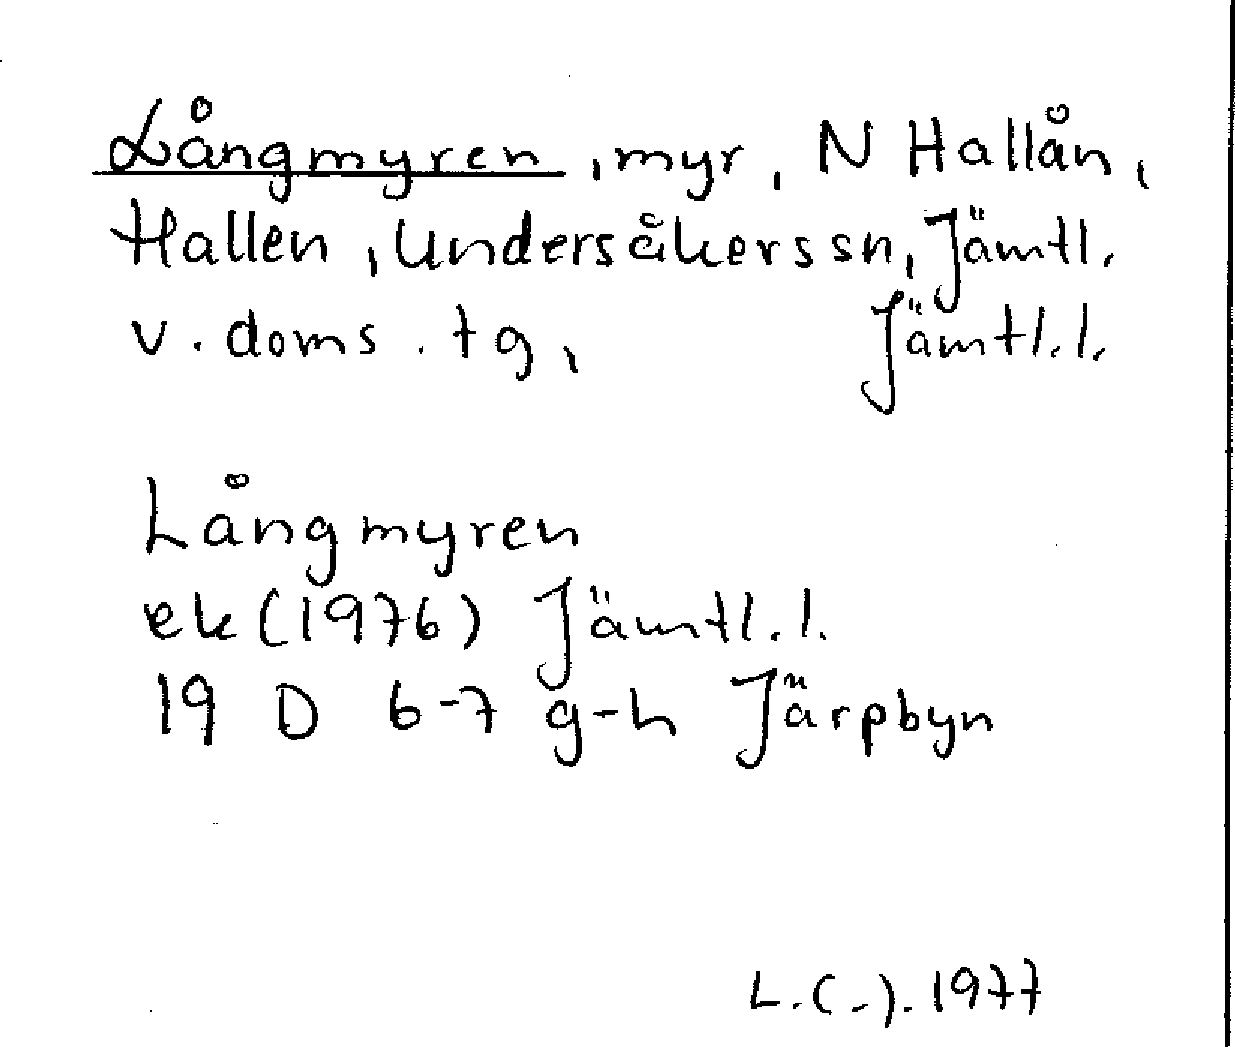 Långmyren, myr, N Hallån,
Hallen, Undersåkers sn, Jämtl.
v. doms. tg, Jämtl.l.
Långmyren
ek (1976) Jämtl.l.
19 D 6-7 g-h Järpbyn
L.(-). 1977